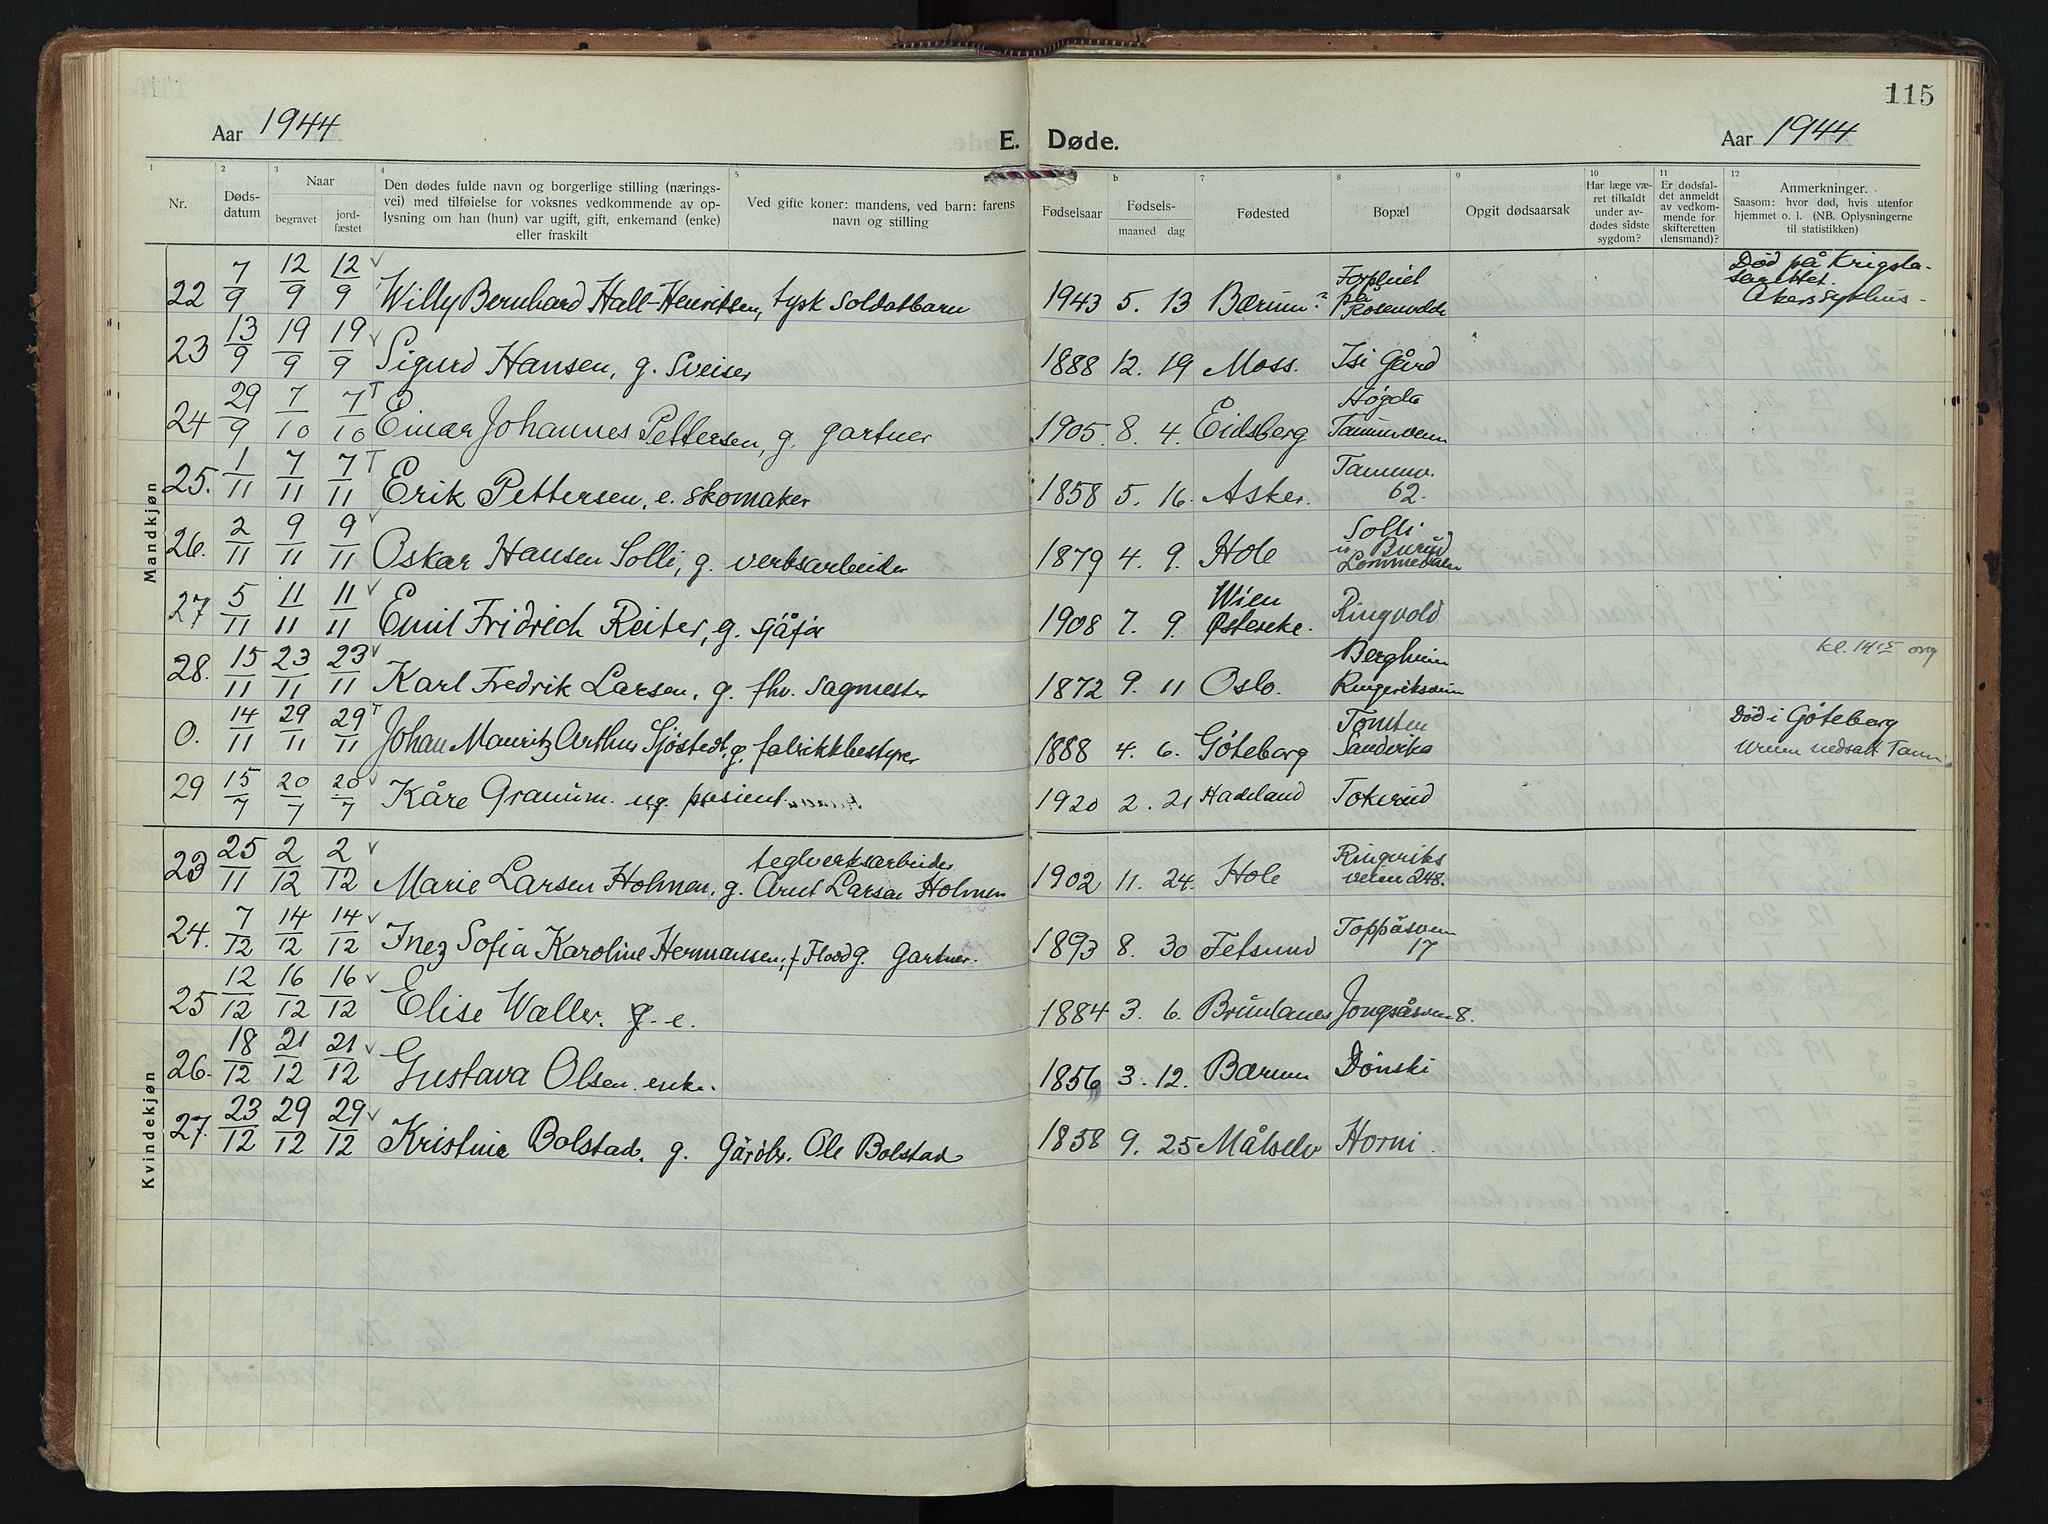 115
Aar 1944 E. Døde. Aar 1944
1 2 3 4 5 b 7 8 9 10 11 12
Nr. Døds-datum Naar begravet jord-fæstet Den dødes fulde navn og borgerlige stilling (nærings-vei) med tilføielse for voksnes vedkommende av op-lysning om han (hun) var ugift, gift, enkemand (enke) eller fraskilt Ved gifte koner: mandens, ved barn: farens navn og stilling Fødselsaar Fødsels-maaned dag Fødested Bopæl Opgit dødsaarsak Har læge væ-ret tilkaldt under av-dødes sidste sygdom? Er dødsfal-det anmeldt av vedkom-mende for skifteretten (lensmand)? Anmerkninger. Saasom: hvor død, hvis utenfor hjemmet o. l. (NB. Oplysningerne til statistikken)
Mandkjøn
22 7/9 12/9 12/9 v Willy Bernhard Hall-Henriksen, tysk soldatbarn 1943 5. 13 Bærum? på Død på Krigsla-sarettet. Akers sykhus-
23 13/9 19/9 19/9 v Sigurd Hansen, g. Sveiser 1888 12. 19 Moss. Isi Gård
24 29/9 7/10 7/10 T Einar Johannes Pettersen, g. gartner 1905. 8. 4. Eidsberg Høgda Tanumveien
25. 1/11 7/11 7/11 T Erik Pettersen, e. skomaker 1858 5. 16. Asker. Tanumv. 62.
26. 2/11 9/11 9/11 v Oskar Hansen Solli, g. verksarbeider 1879 4. 9. Hole Solli Burud Lommedalen
27 5/11 11/11 11/11 v Emil Fridrich Reiter, g. sjåfør 1908 7. 9. Wien Østerrike. Ringvold
28. 15/11 23/11 23/11 v Karl Fredrik Larsen, g. fhv. sagmester 1872 9. 11 Oslo. Bergheim Ringeriksveien kl. 14 15 org
0. 14/11 29/11 29/11 T Johan Mauritz Arthur Sjöstedt, g. fabrikkbestyrer 1888 4. 6. Göteborg Tomten Sandvika Død i Göteborg Urnen nedsatt Tanum
29 15/7 20/7 20/7 v Kåre Granum. ug. pasient 1920 2. 21 Hadeland Tokerud
Kvindekjøn
23 25/11 2/12 2/12 v Marie Larsen Holmen, g. teglverksarbeider Arnt Larsen Holmen 1902 11. 24. Hole Ringeriks veien 248.
24. 7/12 14/12 14/12 v Inez Sofia Karoline Hermansen, f Flood g. Gartner. 1893 8. 30 Fetsund Toppåsveien 17
25 12/12 16/12 16/12 v Elise Waller. g. e. 1884 3. 6. Brunlanes Jongsåsveien 8.
26. 18/12 21/12 21/12 v Gustava Olsen. enke. 1856 3. 12. Bærum Dønski
27. 23/12 29/12 29/12 v Kristine Bolstad. g. Gårdbr. Ole Bolstad 1858 9. 25 Målselv Horni.